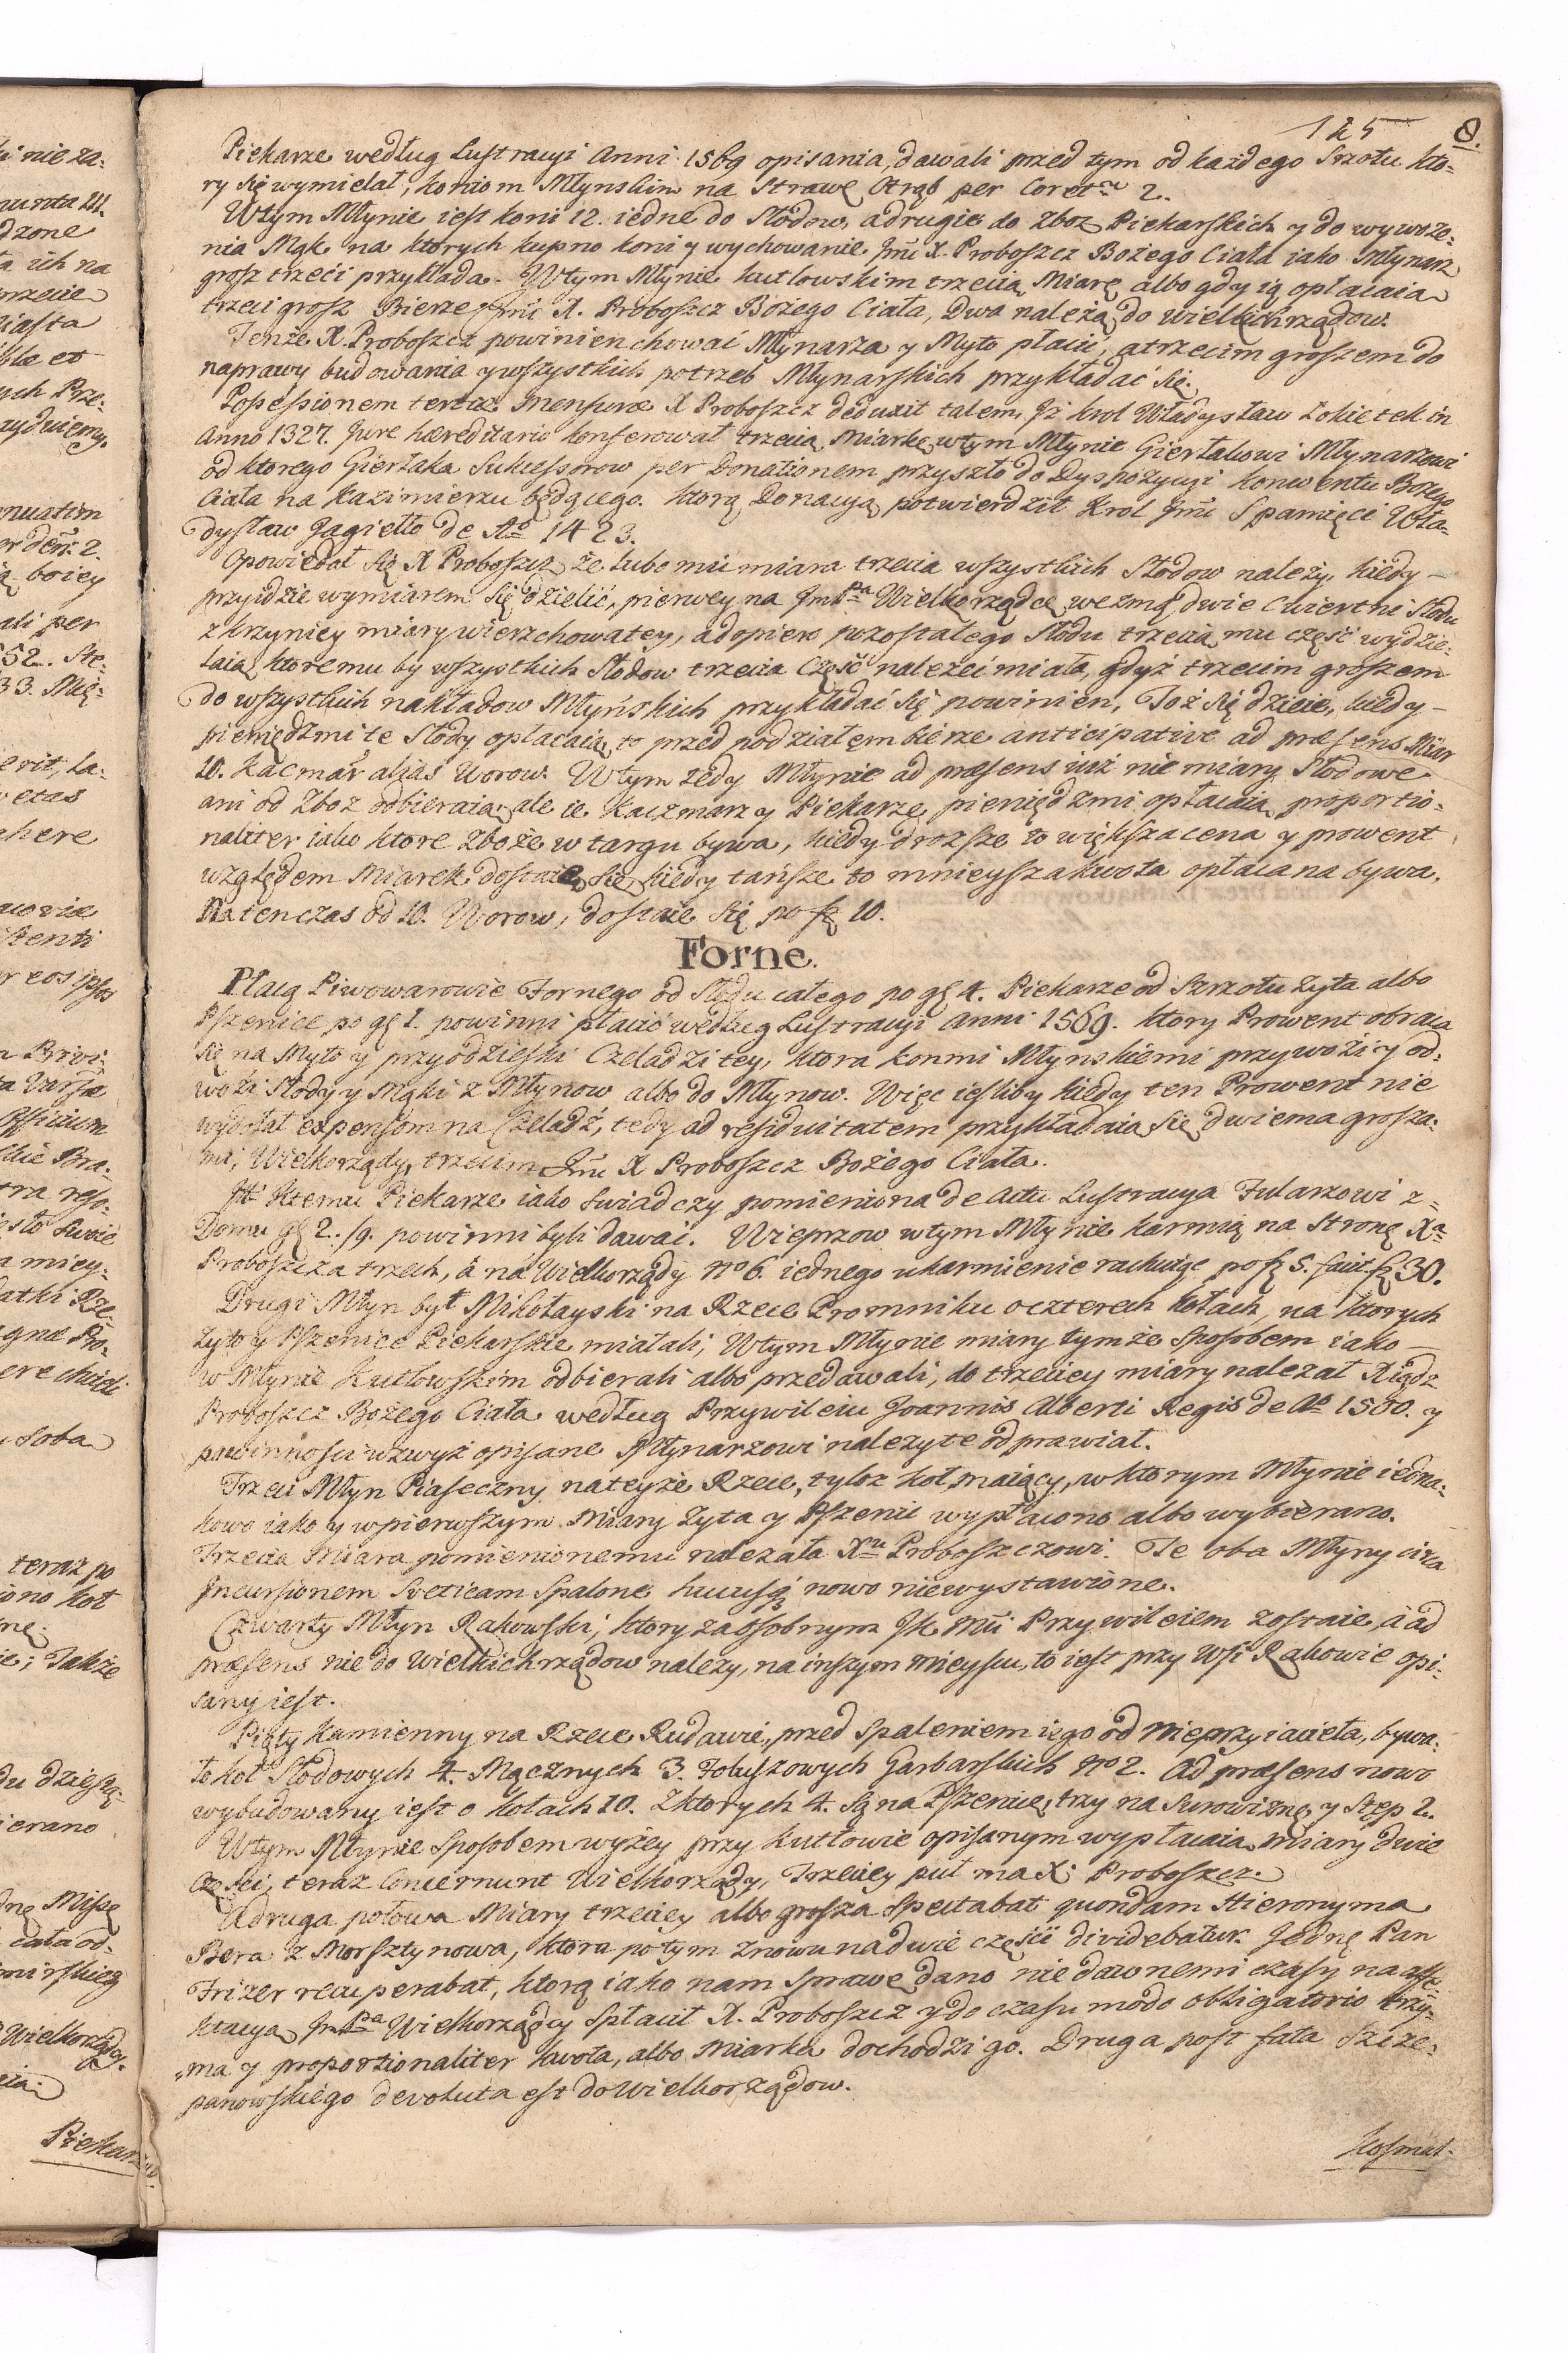 125 8.
Piekarze według Lustracyi Anni 1569 opisania, dawali przed tym od każdego Srzotu kto-
ry się wymielał, koniom Młynskim na Strawę Otrąb per Coret: 2.
Wtym Młynie iest koni 12. iedne do Słodow, a drugie do zboż Piekarskich y do wywoże-
nia Mąk na ktorych kupno koni y wychowanie Jmć X. Proboszcz Bożego Ciała iako Młynarz
grosz trzeci przykłada. Wtym Młynie kutlowskim trzecią Miarę albo gdy ią opłacaia
trzeci grosz Bierze Jmć X. Proboszcz Bożego Ciała, Dwa należą do wielkichrządow.
Tenże X. Proboszcz powinien chować Młynarza y Myto płacić, a trzecim groszem do
naprawy budowania y wszystkich potrzeb Młynarskich przykładać się.
Possessionem tertiæ Mensuræ X Proboszcz deduxit talem, Iż krol Władysław Łokietek in
Anno 1327. Jure hæreditario konferował trzecią Miarkę wtym Młynie Giertakowi Młynarzowi
od ktorego Giertaka Sukcessorow per Donationem przyszło do Dyspozycyi Konwentu Bożego
Ciała na Kazimierzu będącego. ktorą Donacyą potwierdził Krol Jmć S pamięci Wła-
dysław Jagiełło de Ao 1423.
Opowiedał się X Proboszcz że lubo mu miara trzecia wszystkich Słodow należy, kiedy -
przyidzie wymiarem się dzielić, pierwey na JmPa Wielkorządcę wezmą dwie cwiertni Słodu
z krzynicy miary wierzchowatey, a dopiero pozostałego Słodu trzecią mu część wydzie-
laią, ktoremu by wszystkich Słodow trzecia Część należeć miała, gdyż trzecim groszem
do wszystkich nakładow Młyńskich przykładać się powinien, Toż się dzieie, kiedy -
pieniędzmi te Słody opłacaią, to przed podziałem bierze anticipative ad præsens Miar
10. kacmar alias Worow. Wtym tedy Młynie ad præsens iuż nie miary Słodowe
ani od zboż odbieraią, ale ie Kaczmarzy Piekarze pieniędzmi opłacaią proportio-
naliter iako ktore zboże w targu bywa, kiedy droższe to większa cena y prowent
względem Miarek dostaie się, kiedy tańsze to mnieysza kwota opłacana bywa.
Natenczas od 10. Worow, dostaie się po fl 10.
Forne.
Płacą Piwowarowie Fornego od Słodu całego po gę 4. Piekarze od Szrotu Zyta albo
Pszenice po gę 1. powinni płacić według Lustracyi Anni 1569. ktory Prowent obraca
się na Myto y przyodzieski Czeladzi tey, ktora konmi Młynskiemi przywozi y od-
wozi Słody y Mąki z Młynow albo do Młynow. Więc iesliby kiedy ten Prowent nie
wydołał expensom na Czeladź, tedy ad residuitatem przykładaią się dwiema grosza-
mi, Wielkorządy, trzecim Jmć X Proboszcz Bożego Ciała.
Ktemu Piekarze iako swiadczy pomieniona de actu Lustracya Fularzowi z-
Domu gę 2./9. powinni byli dawać. Wieprzow wtym Młynie karmią na Stronę Xa
Proboszcza trzech, á na Wielkorządy No 6. iednego ukarmienie rachuiąc po fl 5. facit fl 30.
Drugi Młyn był Mikołayski na Rzece Promniku o czterech kołach, na ktorych
żyto y Pszenice Piekarskie mielali, Wtym Młynie miary tymże sposobem iako -
w Młynie Kutlowskim odbierali albo przedawali, do trzeciey miary należał Xiądz
Proboszcz Bożego Ciała według Przywileiu Joannis Alberti Regis de Ao 1500. y
powinnosci wzwyż opisane Młynarzowi należyte odprawiał.
Trzeci Młyn Piaseczny na teyże Rzece, tyloż koł maiący, w ktorym Młynie iedna-
kowo iako y wpierwszym Miary Zyta y Pszenic wypłacono albo wybierano.
Trzecia Miara pomienionemu należała Xu Proboszczowi. Te oba Młyny circa
Incursionem Sveticam Spalone hucusq nowo niewystawione.
Czwarty Młyn Rakowski, ktory za osobnym JK Mci Przywileiem zostaie, á ad
præsens nie do Wielkichrządow należy, na inszym mieyscu, to iest przy Wsi Rakowie opi-
sany iest.
Piąty Kamienny na Rzece Rudawie, przed spaleniem iego od nieprzyiaciela, bywa-
ło koł Słodowych 4. Mącznych 3. Foluszowych Garbarskich No 2. Ad præsens nowo
wybudowany iest o kołach 10. Zktorych 4. są na Pszenicę, trzy na Surowiznę, y Stęp 2.
Wtym Młynie Sposobem wyżey przy Kutlowie opisanym wypłacaią miary dwie
części, teraz Concernunt Wielkorządy, Trzeciey puł ma X. Proboszcz.
A druga połowa Miary trzeciey albo grosza Spectabat quondam Hieronyma
Bera z Morsztynowa, ktora potym znowu na dwie części dividebatur. Jednę Pan
Frizer recuperabat, ktorą iako nam sprawę dano niedawnemi czasy na affe-
ktacyą JmPa Wielkorządcy spłacił X. Proboszcz y do czasu modo obligatorio trzy-
ma y proportionaliter kwota, albo Miarka dochodzi go. Druga post fata Szcze-
panowskiego devoluta est do Wielkorządow.
Kosmal-